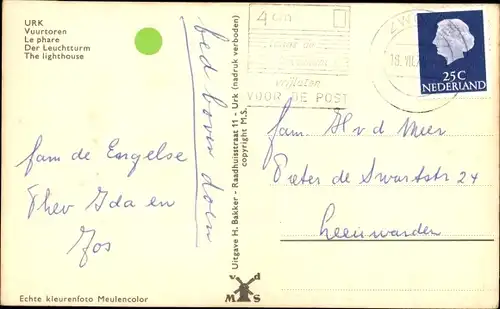 URK
Vuurtoren
Le phare
Der Leuchtturm
The lighthouse
fam de Engelse
Thev Ida en
Jos
bed boven doen
Uitgave H. Bakker - Raadhuisstraat 11 - Urk (nadruk verboden)
copyright M.S.
4 cm
VOOR DE POST
ZWO
18. VII.
25C
NEDERLAND
fam. H v d Meer
Pieter de Swartstr 24
Leeuwarden
v d
M S
Echte kleurenfoto Meulencolor